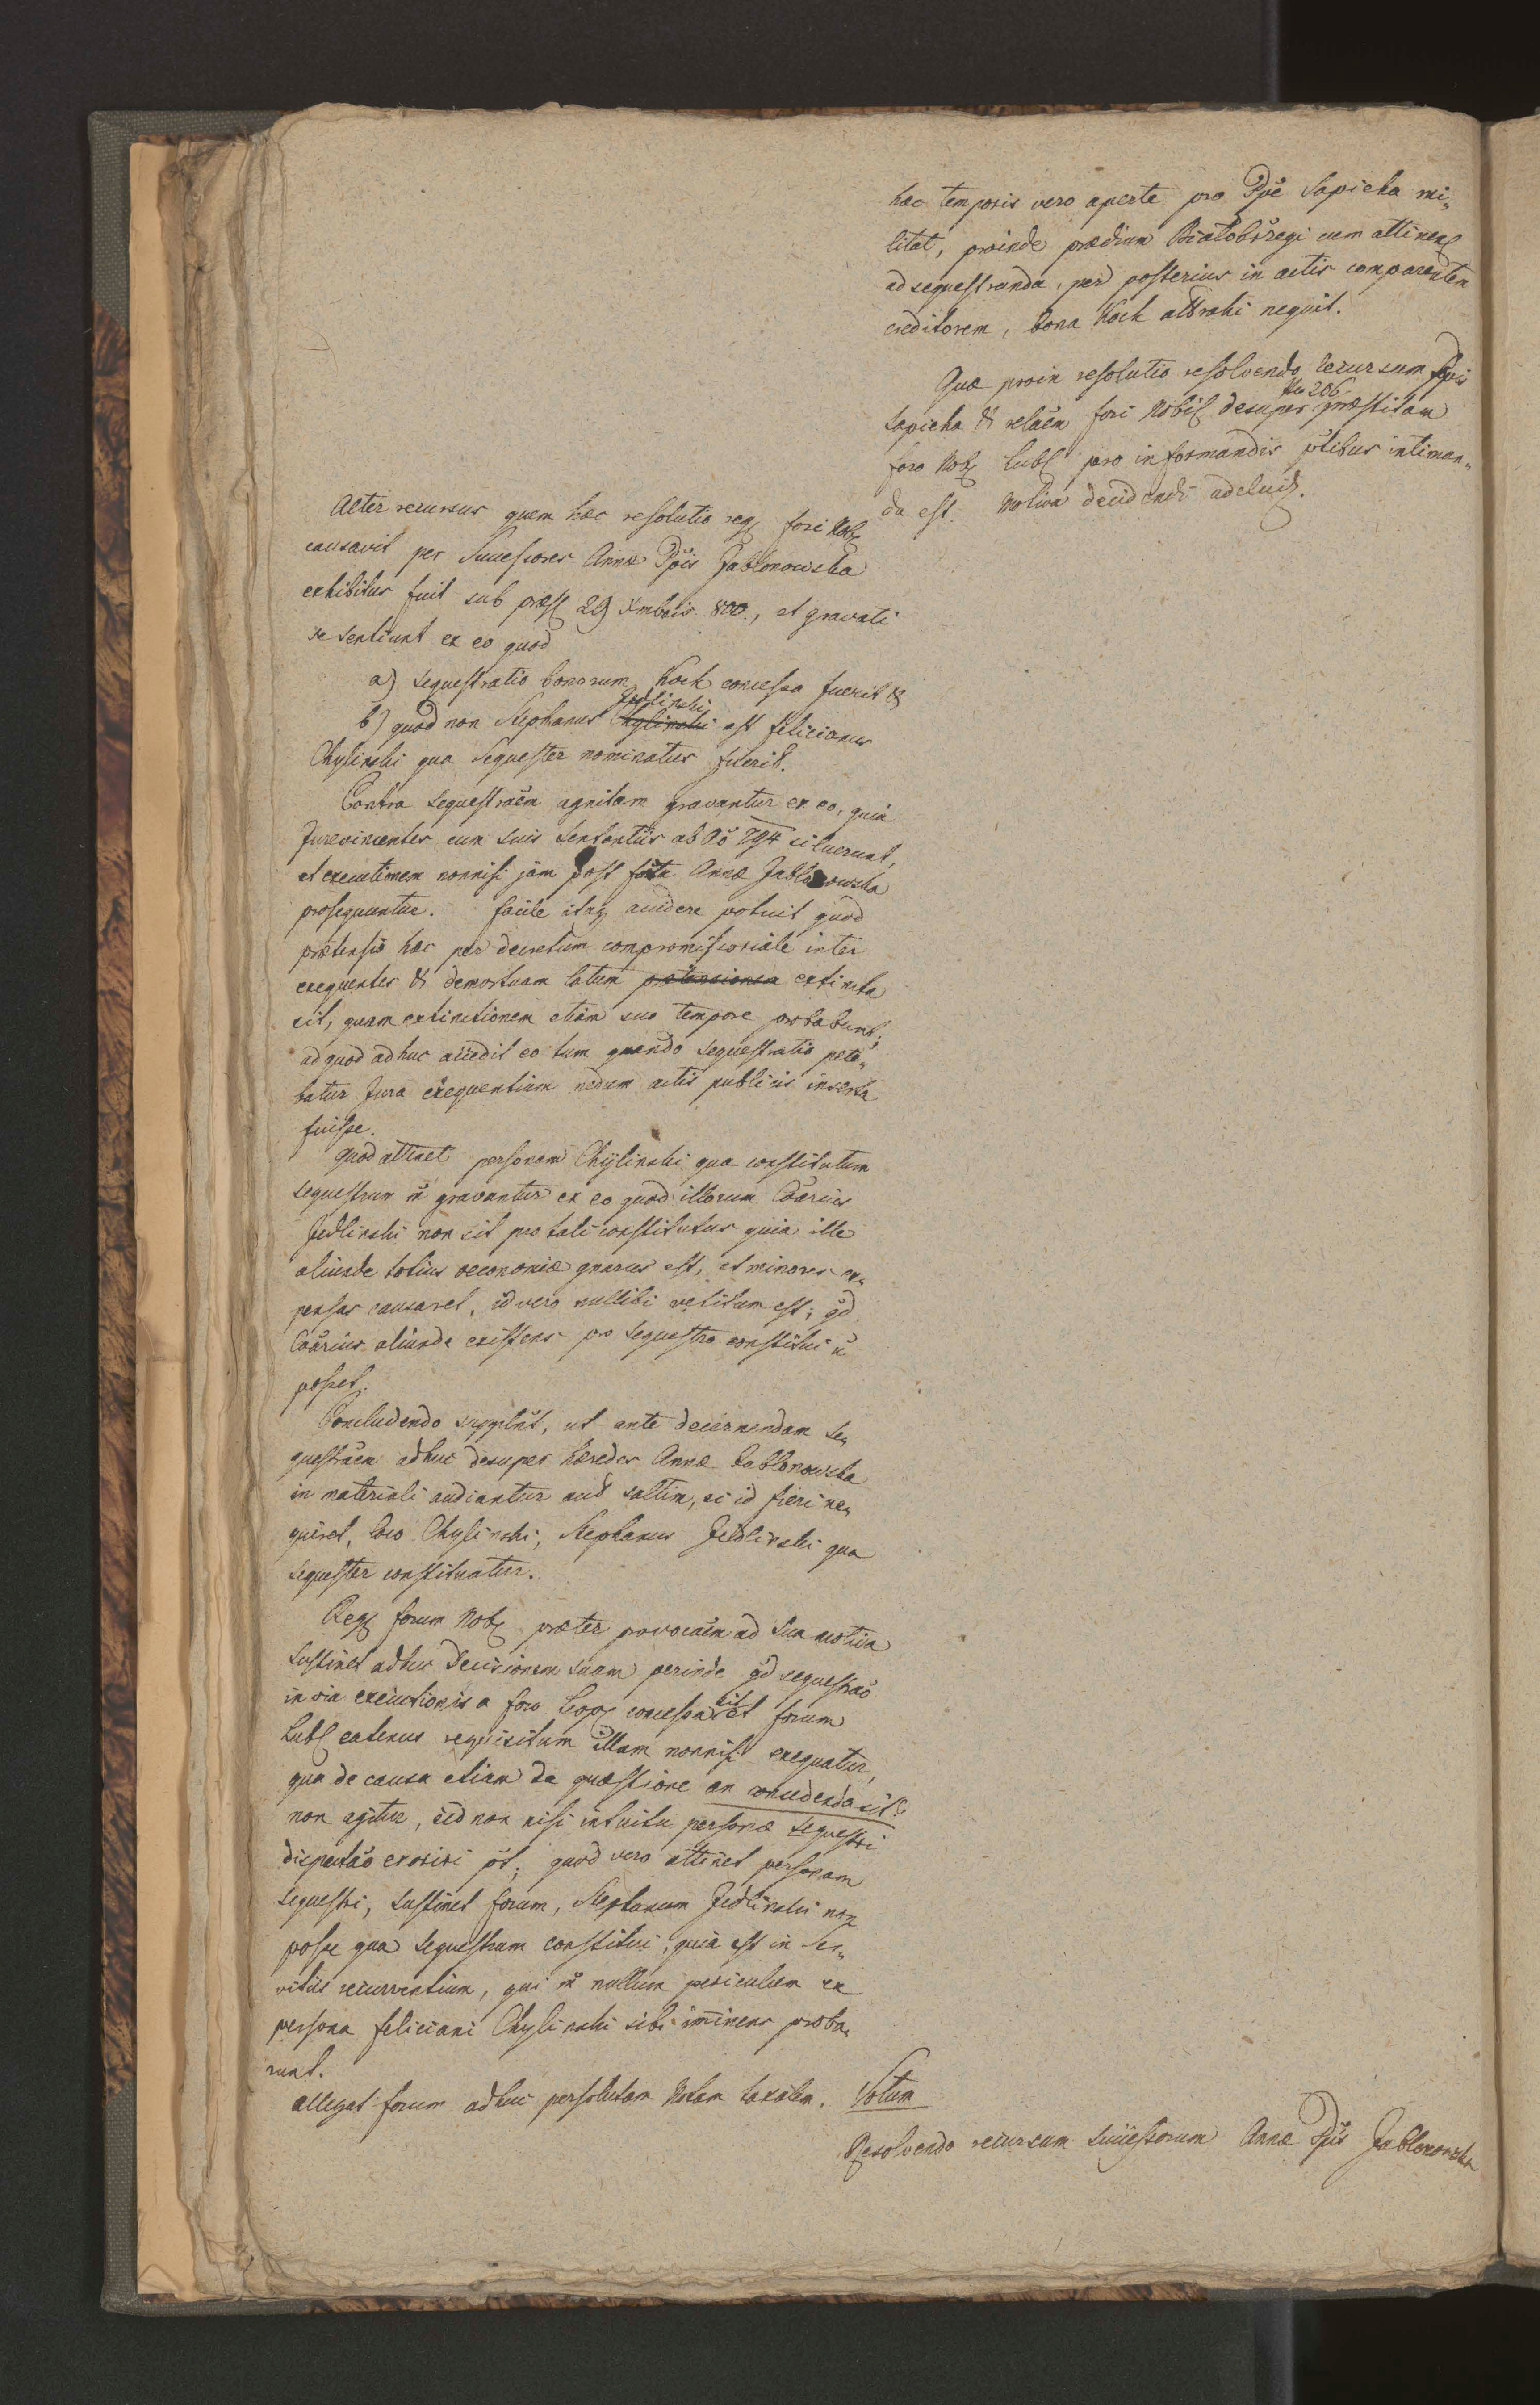 hac temporis vero aperte pro Ppe Sapieha mi„
litat, proinde prædium Białobrzegi cum attinen
adsequestranda, per posterius in actis comparentem
creditorem, bona Kock attrahi nequit.
Quæ proin resolutio resolvendo recursum Ppis
Sapieha & relaõem fori Nobil desuper Nro 206 præstitam
foro Nob Lubl pro informandis ptibus intiman„
da est. Motiva decidendi adcluid.
Alter recursus quem hæc resolutio reg fori Nob
causavit per Successores Annæ Ppis Jablonowska
exhibitus fuit sub præs 29 Xmbris 800., et gravati
se sentiunt ex eo quod
a) sequestratio bonorum Kock concessa fuerit &
b) quod non Stephanus Chylinski Jedlinski ast Felicianus
Chylinski qua Sequester nominatus fuerit.
Contra sequestraõem agnitam gravantur ex eo, quia
Jurevincentes cum suis Sententiis ab Aõ 794 siluerunt,
et executionem nonnisi jam post fata Annæ Jablonowska
prosequuntur. facile itaq accidere potuit quod
prætensio hæc per decretum compromissoriale inter
exequentes & demortuam latum prætensionem extincta
sit, quam extinctionem etiam suo tempore probabunt;
ad quod adhuc accedit eo tum quando sequestratio pete„
batur Jura exequentium nedum actis publicis inserta
fuisse.
Quod attinet personam Chylinski qua constitutum
sequestrum ã gravantur ex eo quod illorum Coãrius
Jedlinski non sit pro tali constitutus quia ille
aliunde totius oeconomiæ gnarus est, et minores ex„
pensas causaret, id vero nullibi vetitum est; qd
Coãrius aliunde existens pro sequestro constitui ñ
posset.
Concludendo supplnt, ut ante decernendam se„
questraõem adhuc desuper hæredes Annæ Jablonowska
in materiali audiantur aut saltim, si id fieri ne„
quiret, loco Chylinski, Stephanus Jedlinski qua
sequester constituatur.
Reg forum Nob præter provocaõem ad sua motiva
Sustinet adhuc Decisionem suam perinde qd sequestraõ
in via executionis a foro Leop concessa sit et forum
Lubl eatenus requisitum illam nonnisi exequatur,
qua de causa etiam de quæstione an concedenda sit?
non agitur, sed non nisi intuitu personæ sequestri
disputaõ exoriri pot; quod vero attinet personam
sequestri, sustinet forum, Stephanum Jedlinski non
posse qua sequestrum constitui, quia est in ser„
vitiis recurrentium, qui ã nullum periculum ex
persona Feliciani Chylinski sibi iminens proba„
runt.
Allegat forum adhuc persolutam Notam taxalem. Votum
Resolvendo recursum successorum Annæ Ppis Jablonowska